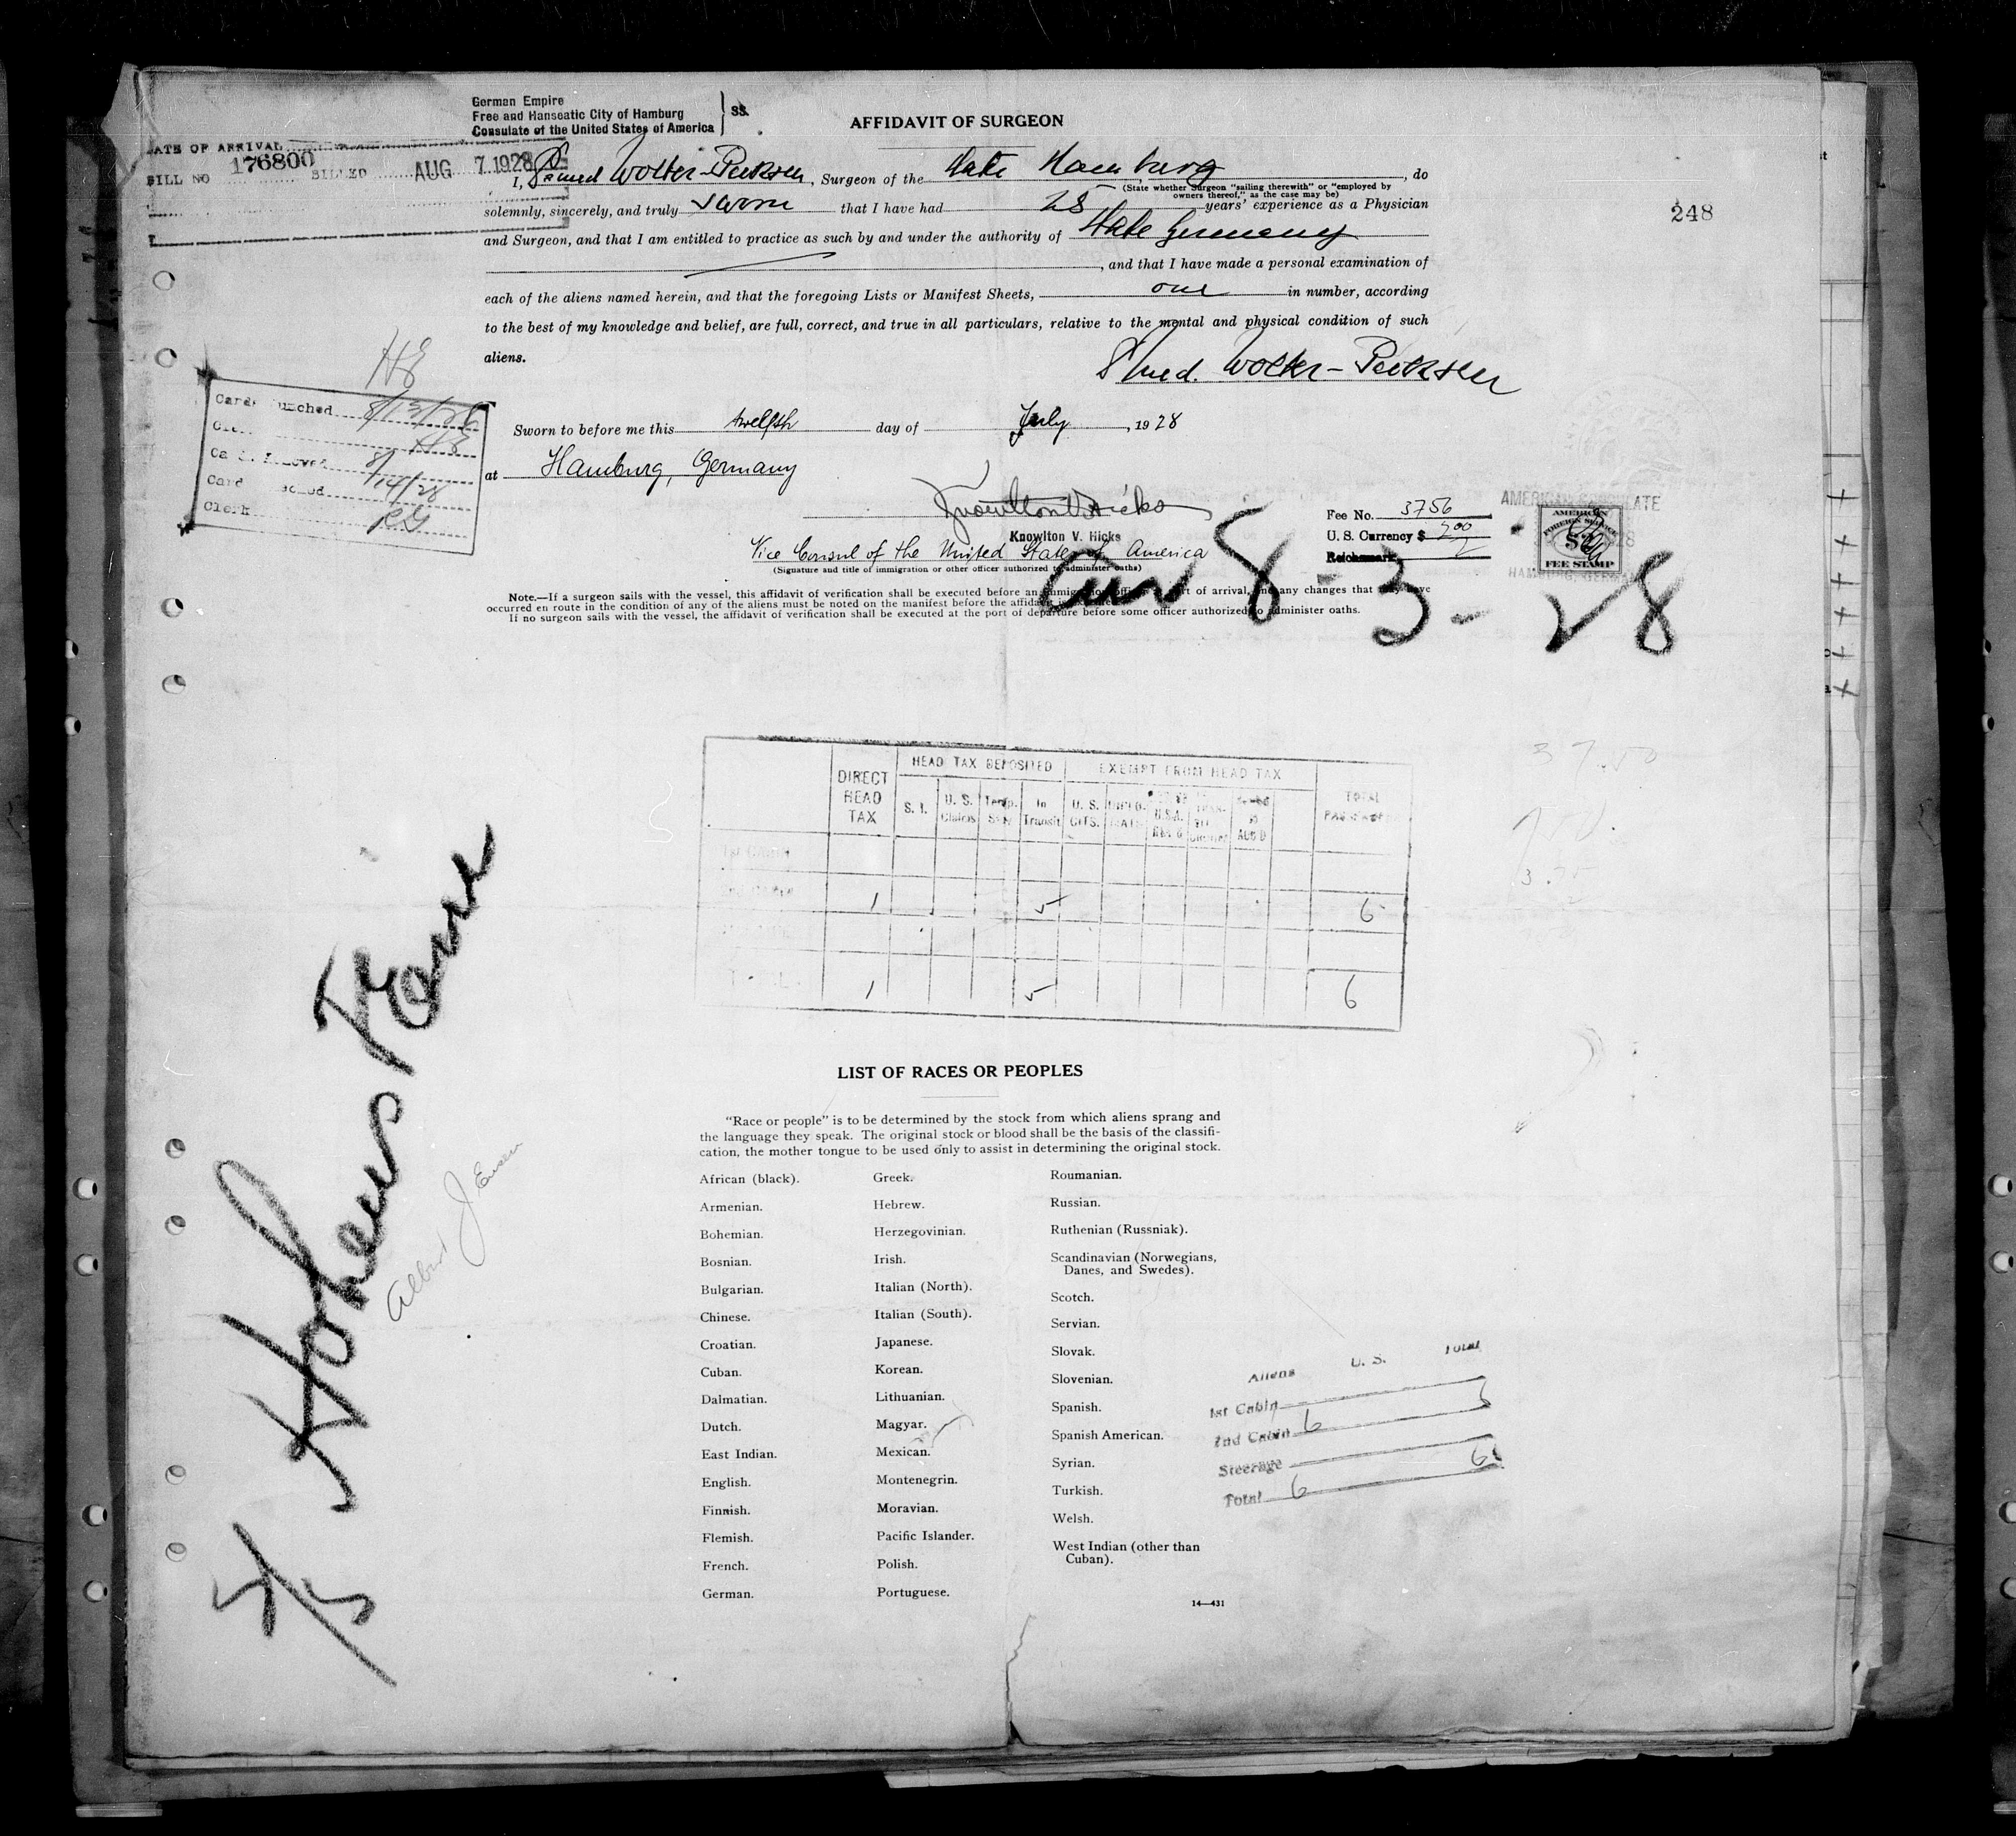 German Empire
Free and Hanseatic City of Hamburg
Consulate of the United States of America
SS.
AFFIDAVIT OF SURGEON
DATE OF ARRIVAL
BILL NO 176800 BILLED AUG 7 1928
I, Wolter-Pecksen, Surgeon of the State Hamburg, do
(State whether Surgeon "sailing therewith" or "employed by
owners thereof," as the case may be)
solemnly, sincerely, and truly sworn that I have had 28 years' experience as a Physician
248
and Surgeon, and that I am entitled to practice as such by and under the authority of State Germany
, and that I have made a personal examination of
each of the aliens named herein, and that the foregoing Lists or Manifest Sheets, one in number, according
to the best of my knowledge and belief, are full, correct, and true in all particulars, relative to the mental and physical condition of such
aliens.
med. Wolter-Pecksen
HE
Card Punched 8/13/28
HE
8/14/28
Card
Clerk RG
Sworn to before me this twelfth day of July, 1928
at Hamburg, Germany
Knowlton V. Hicks
Knowlton V. Hicks
Vice Consul of the United States of America
(Signature and title of immigration or other officer authorized to administer oaths)
Fee No. 3756
U. S. Currency $ 2.00
Reichsmark
AMERICAN CONSULATE
AMERICAN
FOREIGN SERVICE
$2
FEE STAMP
HAMBURG, GERMANY
Arr 8-3-28
Note.—If a surgeon sails with the vessel, this affidavit of verification shall be executed before an immigration officer at port of arrival, and any changes that may have
occurred en route in the condition of any of the aliens must be noted on the manifest before the affidavit is
If no surgeon sails with the vessel, the affidavit of verification shall be executed at the port of departure before some officer authorized to administer oaths.
37.50
3.75
DIRECT HEAD TAX
HEAD TAX DEPOSITED
EXEMPT FROM HEAD TAX
TOTAL PASSENGERS
S. I.
U. S. Claims
Temp. Stay
In Transit
U. S. CITS.
DIPLO-MATS
1st Cabin
2nd Cabin 1 5 6
TOTAL 1 5 6
Hohenstein
Albert Jensen
5/5
LIST OF RACES OR PEOPLES
"Race or people" is to be determined by the stock from which aliens sprang and
the language they speak. The original stock or blood shall be the basis of the classifi-
cation, the mother tongue to be used only to assist in determining the original stock.
African (black).
Armenian.
Bohemian.
Bosnian.
Bulgarian.
Chinese.
Croatian.
Cuban.
Dalmatian.
Dutch.
East Indian.
English.
Finnish.
Flemish.
French.
German.
Greek.
Hebrew.
Herzegovinian.
Irish.
Italian (North).
Italian (South).
Japanese.
Korean.
Lithuanian.
Magyar.
Mexican.
Montenegrin.
Moravian.
Pacific Islander.
Polish.
Portuguese.
Roumanian.
Russian.
Ruthenian (Russniak).
Scandinavian (Norwegians,
Danes, and Swedes).
Scotch.
Servian.
Slovak.
Slovenian.
Spanish.
Spanish American.
Syrian.
Turkish.
Welsh.
West Indian (other than
Cuban).
Aliens U. S. Total
1st Cabin
2nd Cabin 6
Steerage
Total 6 6
14—431